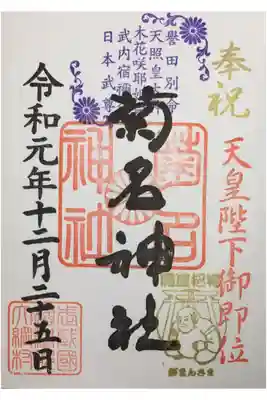 奉祝
天皇陛下御即位
誉田別命
天照皇大
木花咲耶姫
武内宿禰
日本武尊
菊名神社
菊名
神社
令和元年十二月二十五日